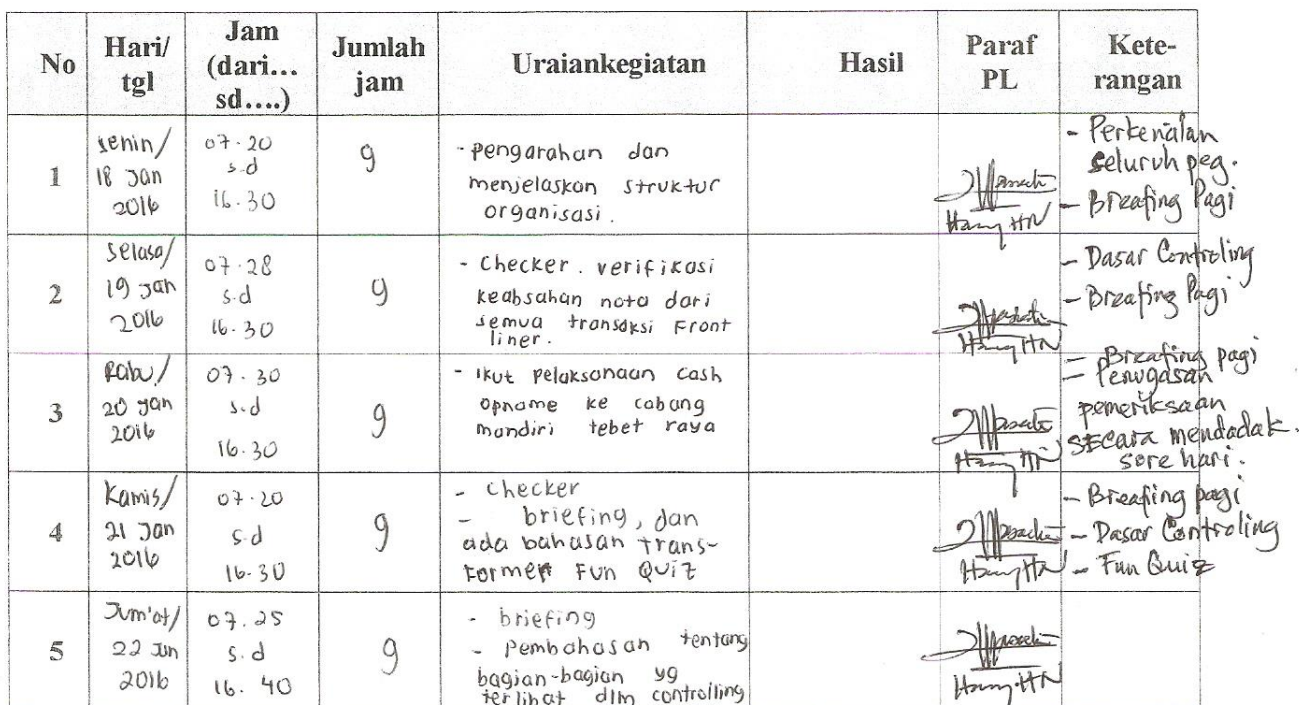 No
Hari/
tgl
Jam
(dari...
sd....)
Jumlah
jam
Uraiankegiatan
Hasil
Paraf
PL
Kete-
rangan
1
Senin/
18 Jan
2016
07.20
s.d
16.30
9
- pengarahan dan
menjelaskan struktur
organisasi.
Hany HN
- Perkenalan
seluruh peg.
- Breafing Pagi
2
Selasa/
19 Jan
2016
07.28
s.d
16.30
9
- Checker. verifikasi
keabsahan nota dari
semua transaksi Front
liner.
Hany HN
- Dasar Controling
- Breafing Pagi
3
Rabu/
20 Jan
2016
07.30
s.d
16.30
9
- Ikut pelaksanaan cash
opname ke cabang
mandiri tebet raya
Hany HN
- Breafing pagi
- Penugasan
pemeriksaan
secara mendadak.
sore hari.
4
Kamis/
21 Jan
2016
07.20
s.d
16.30
9
- checker
- briefing, dan
ada bahasan trans-
former Fun Quiz
Hany HN
- Breafing pagi
- Dasar Controling
- Fun Quiz
5
Jum'at/
22 Jan
2016
07.25
s.d
16.40
9
- briefing
- Pembahasan tentang
bagian-bagian yg
terlihat dlm controlling
Hany HN